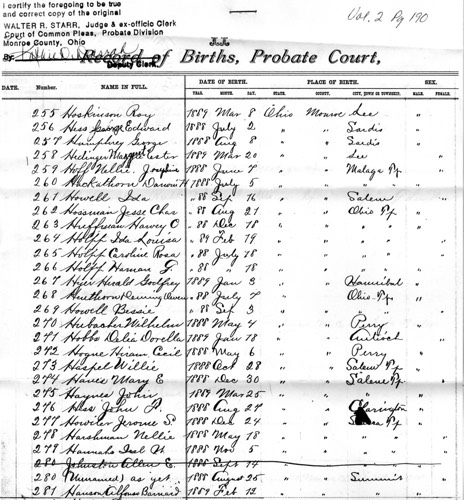 I certify the foregoing to be true
and correct copy of the original
WALTER R. STARR, Judge & ex-officio Clerk
Court of Common Pleas, Probate Division
Monroe County, Ohio
By
Deputy Clerk
Vol. 2 Pg 190
Record of Births, Probate Court,
DATE OF BIRTH. PLACE OF BIRTH. SEX.
DATE. Number. NAME IN FULL. YEAR. MONTH. DAY. STATE. COUNTY. CITY, TOWN OR TOWNSHIP. MALE. FEMALE.
255 Hoskinson Roy 1889 Mar 8 Ohio Monroe Lee
256 Hess George Edward 1888 July 2 " " Sardis "
257 Humphrey George 1888 Aug 8 " " Sardis "
258 1889 Mar 20 " " Lee "
259 Hoff Nellie Josephine 1888 June 7 " " Malaga Tp "
260 Hackathorn 1888 July 5 " "
261 Howell Ida " 88 Sep 16 " " Salem "
262 Hossman Jesse Chas " 88 Aug 21 " " Ohio Tp "
263 Huffman Harvey O " 88 Dec 18 " "
264 Holpp Ida Louisa " 89 Feb 19 " "
265 Holpp Caroline Rosa " 88 July 18 " "
266 Holpp Haman G " 88 " 18 " "
267 Godfrey 1889 Jan 3 " " Hannibal "
268 " 88 July 7 " " Ohio Tp "
269 Howell Bessie " 88 Sep 3 " "
270 Wilhelm 1888 May 4 " " Perry "
271 Hobbs Delia Dorella 1889 Jan 18 " " Antioch "
272 Hogue Hiram Cecil 1888 May 6 " " Perry "
273 Haspel Willie 1888 Oct 28 " " Salem Tp "
274 Hanes Mary E 1888 Dec 30 " " Salem Tp "
275 Haynes John 1889 Mar 25 " "
276 Hess John P. 1888 Aug 27 " " Clarington "
277 Jerome S. 1888 Dec 24 " " Tp "
278 Harshman Nellie 1888 May 18 " "
279 Hannahs 1888 Nov 5 " "
280 Johnston Allen E. 1888 Sept 14
280 (Unnamed) as yet 1888 Aug 25 " " Summit "
281 Hanson Alfonso Barnard 1889 Feb 12 " "